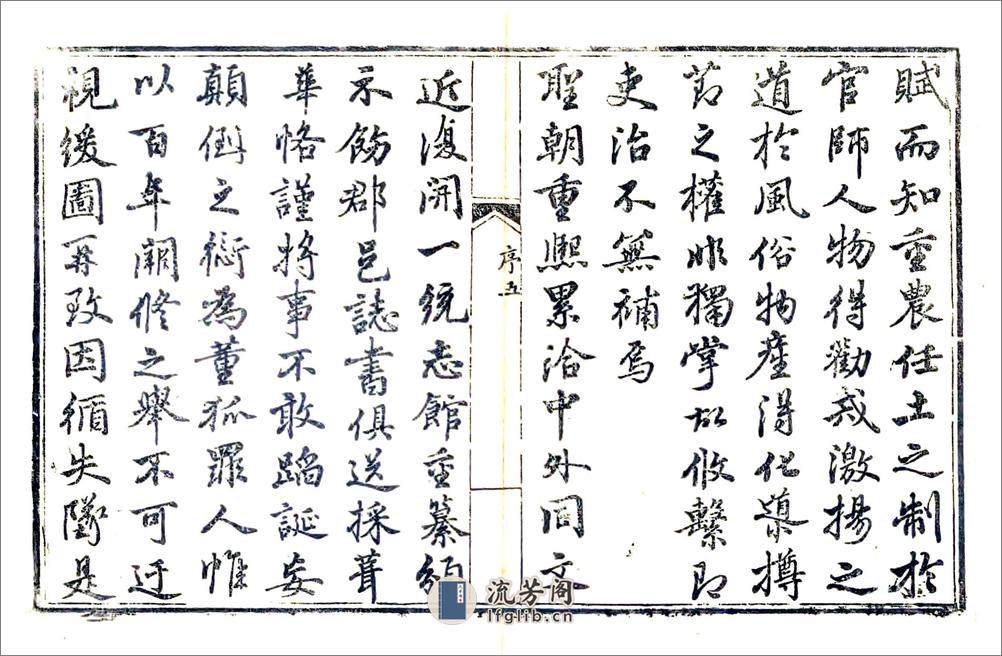 賦而知重農任土之制於
官師人物得勸戒激揚之
道於風俗物產得化導撙
節之權非獨掌故攸繫即
吏治不無補焉
聖朝重熙累洽中外同文
序五
近復開一統志館重纂頒
示飭郡邑誌書俱送採葺
華恪謹將事不敢蹈誕妄
顛倒之愆為董狐罪人惟
以百年闕修之舉不可迂
視緩圖再致因循失墜是
流芳阁
lfglib.cn